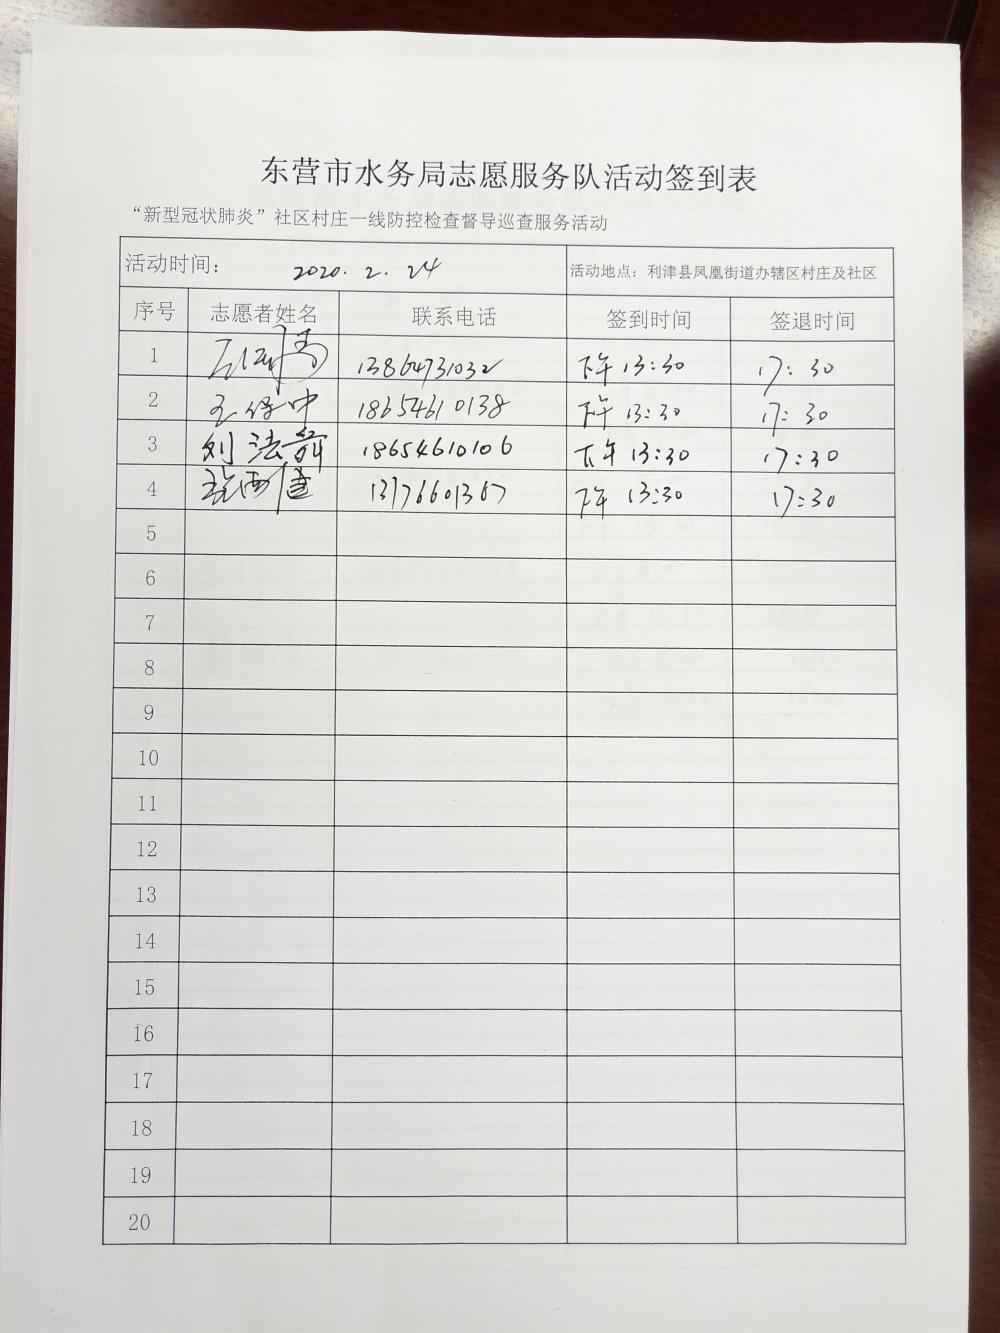 东营市水务局志愿服务队活动签到表
“新型冠状肺炎”社区村庄一线防控检查督导巡查服务活动
活动时间： 2020.2.24 活动地点：利津县凤凰街道办辖区村庄及社区
序号 志愿者姓名 联系电话 签到时间 签退时间
1 13864731032 下午 13:30 17:30
2 王保中 18654610138 下午 13:30 17:30
3 刘法 18654610106 下午 13:30 17:30
4 13176601367 下午 13:30 17:30
5
6
7
8
9
10
11
12
13
14
15
16
17
18
19
20